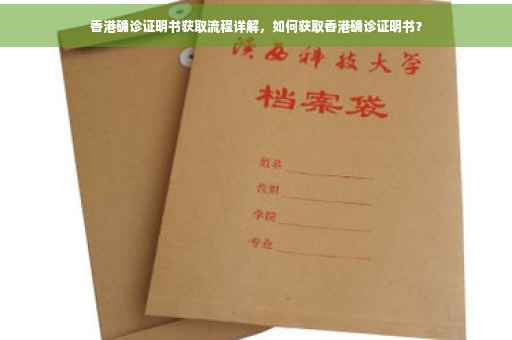 香港确诊证明书获取流程详解，如何获取香港确诊证明书？
陕西科技大学
档案袋
姓名
学院
专业